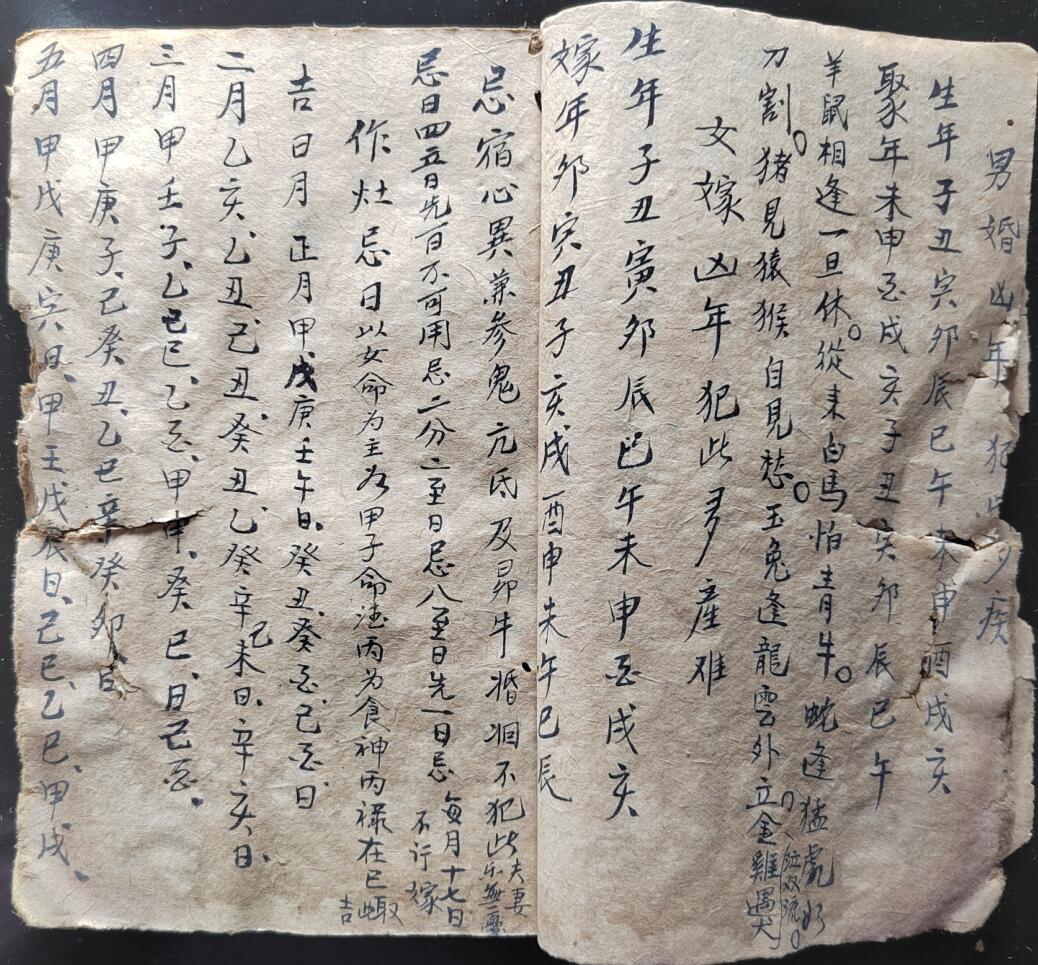 男婚凶年犯此多疾
生年子丑宾卯辰巳午未申酉戌亥
娶年未申酉戌亥子丑寅卯辰巳午
羊鼠相逢一旦休。從来白馬怕青牛。蛇逢猛虎如
刀割。猪見猿猴自見愁。玉兔逢龍雲外立。金雞遇犬泪双流。
女嫁凶年犯此多產难
生年子丑寅卯辰巳午未申酉戌亥
嫁年卯宾丑子亥戌酉申未午巳辰
忌宿心異兼参鬼亢氐及昴牛婚姻不犯此夫妻乐無憂
忌日四五日先一百不可用忌二分二至日忌八至日先一日忌每月十七日不行嫁
作灶忌日以女命为主如甲子命法丙为食神丙禄在巳取吉
吉日月正月甲戌庚壬午日、癸丑、癸酉、己酉日
二月乙亥、乙丑、己丑、癸丑、乙癸辛己未日、辛亥日、
三月甲壬子、乙己巳、乙酉、甲申、癸巳、日己酉、
四月甲庚子、己癸丑、乙巳、辛癸卯、日
五月甲戊庚宾日、甲壬戊辰日、己巳、乙巳、甲戌、